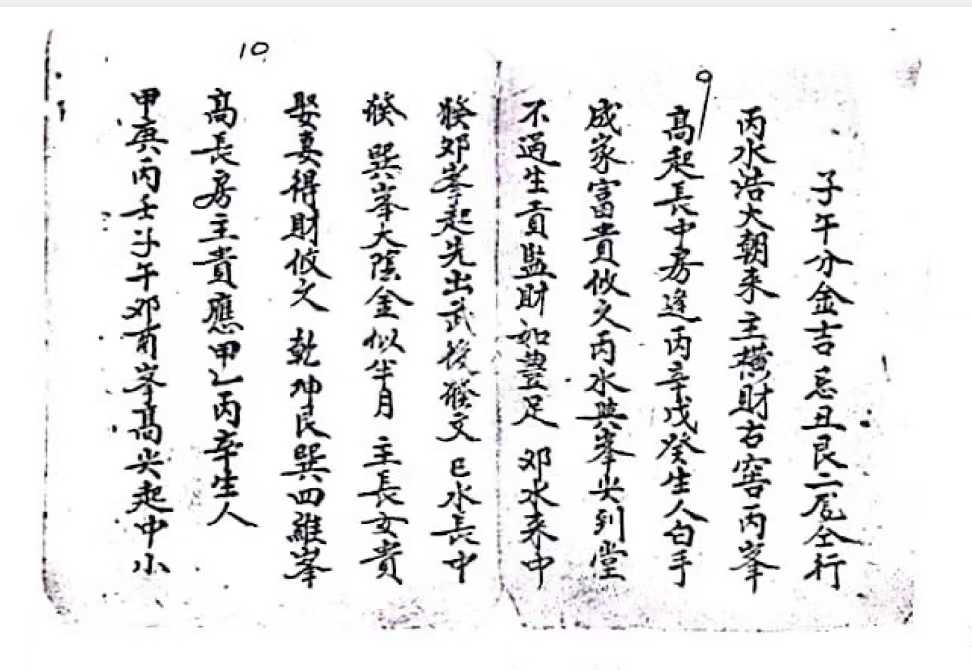 9
子午分金吉忌丑艮二
行
丙水浩大朝来主横財右窖丙峯
高起長中房逢丙辛戊癸生人白手
成家富貴攸久丙水與峯尖列堂
不過生貢監財如豐足 邜水来中
發邜峯起先出武後發文 巳水長中
發 巽峯大陰金似半月 主長女貴
娶妻得財攸久 乾坤艮巽四維峯
高長房主貴應甲乙丙辛生人
甲庚丙壬子午邜酉峯高尖起中小
10